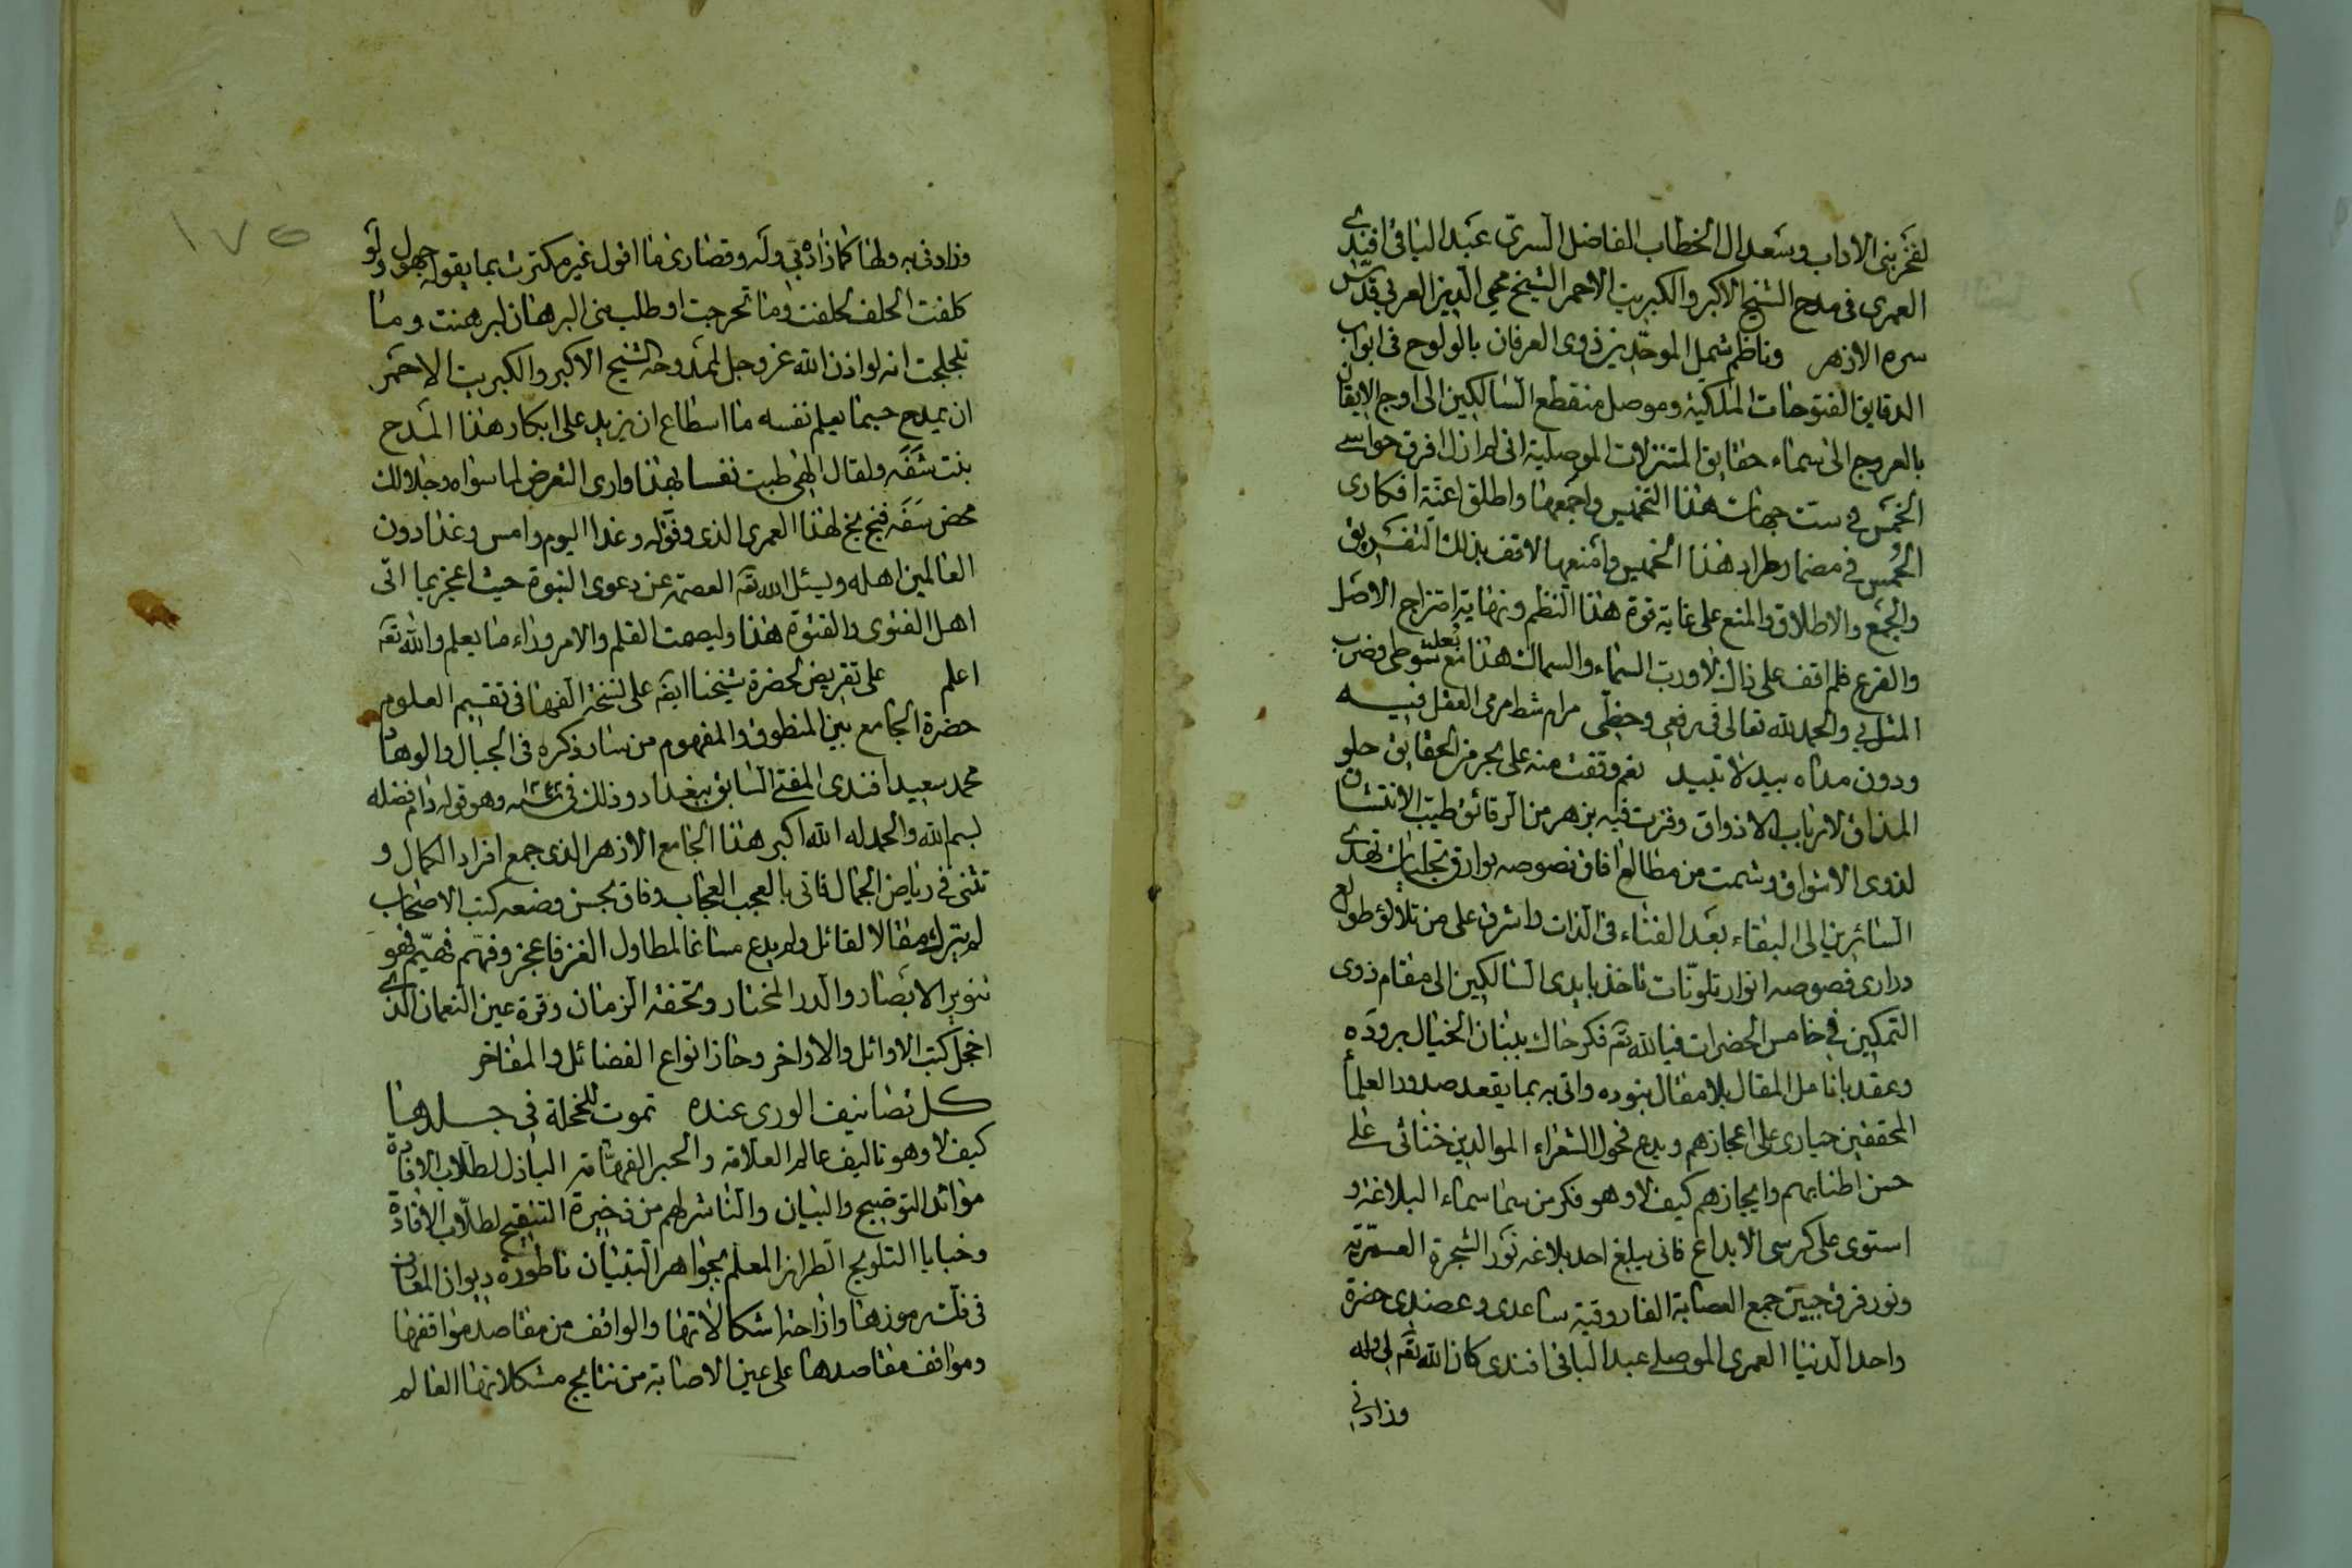 لفخر بنى الاداب وسعد ال الخطاب الفاضل السرى عبد الباقى افندى
العمرى فى مدح الشيخ الاكبر والكبريت الاحمر الشيخ محي الدين العربي قدس
سره الازهر وناظم شمل الموحدين ذوى العرفان بالولوج فى ابواب
الدقايق الفتوحات الملكية وموصل منقطع السالكين الى اوج الايقان
بالعروج الى سماء حقايق المتنزلات الموصلية انى لم ازل افرق حواسى
الخمس في ست جهات هذا التخميس واجمعها واطلق اعنة افكارى
الحمس في مضمار طراد هذا الخميس وامنعها لاقف بذلك التفريق
والجمع والاطلاق والمنع على غاية قوة هذا النظم ونهاية امتزاج الاصل
والفرع فلم اقف على ذلك لا ورب السماء والسماك هذا مع بعد شوطى وضرب
المثل بي والحمد لله تعالى فى رفعى وحظى مرام شط مرمى العقل فيه
ودون مداه بيد لا تبيد نعم وقفت منه على بحر من الحقايق حلو
المذاق لارباب الاذواق وفزت فيه بزهر من الرقائق طيب الانتشاق
لذوى الاشواق وشمت من مطالع افاق نصوصه بوارق تجليات تهدى
السائرين الى البقاء بعد الفناء فى الذات واشرف على من تلالؤ طوالع
درارى فصوصه انوار تلونات تاخذ بايدى السالكين الى مقام ذوى
التمكين في خامس الحضرات فيا لله تعه فكر حاك ببنان الخيال بروده
وعقد بانامل المقال بلا مقال بنوده واتى به بما يقعد صدور العلما
المحققين حيارى على اعجازهم ويدع فحول الشعراء الموالدين خناثى على
حسن اطنابهم وايجازهم كيف لا وهو فكر من سما سماء البلاغة و
استوى على كرسى الابداع فانى يبلغ احد بلاغه نور الشجرة العمرية
ونور فرق جبين جمع العصابة الفاروقية ساعدى وعضدى حضرة
واحد الدنيا العمرى الموصلى عبد الباقى افندى كان الله تعه لى وله
وزادنى
١٧٥
وزادنى به ولها كما زاده بي وله وقصارى ما اقول غير مكترث بما يقول جهول ولو
كلفت الحلف لحلفت وما تحرجت او طلب منى البرهان لبرهنت وما
تلجلجت انه لو اذن الله عز وجل لممدوحه الشيخ الاكبر والكبريت الاحمر
ان يمدح حيما يعلم نفسه ما اسطاع ان يزيد على ابكار هذا المدح
بنت شفه ولقال الهى طبت نفسا بهذا وارى التعرض لما سواه وجلالك
محض سفه فبخ بخ لهذا العمرى الذى وفق له وغدا اليوم وامس وغدا دون
العالمين اهله وليسئل الله تعه العصمة عن دعوى النبوة حيث اعجز بما اتى
اهل الفتوى والفتوة هذا وليصمت القلم والامر وراء ما يعلم والله تعه
اعلم على تقريض لحضرة شيخنا ايضه على نسخة الفها فى تقسيم العلوم
حضرة الجامع بين المنطوق والمفهوم من سار ذكره فى الجبال والوهاد
محمد سعيد افندى المفتى السابق ببغداد وذلك فى وهو قوله دام فضله
بسم الله والحمد له الله اكبر هذا الجامع الازهر الذى جمع افراد الكمال و
تثنى فى رياض الجمال فاتى بالعجب العجاب وفاق بحسن وضعه كتب الاصحاب
لم يترك مقالا لقائل ولم يدع مساغا لمطاول الغز فاعجز وفهم فهيم فهو
تنوير الابصار والدر المختار وتحفة الزمان وقرة عين النعمان الذى
اخجل كتب الاوائل والاواخر وحاز انواع الفضائل والمفاخر
كل تصانيف الورى عنده تموت للخجلة فى جلدها
كيف لا وهو تاليف عالم العلامة والحبر الفهامة الباذل لطلاب الافادة
موائد التوضيح والبيان والناشر لهم من ذخيرة التنقيح لطلاب الافادة
وخبايا التلويح الطراز المعلم بجواهر التبيان ناظورة ديوان المعانى
فى فك رموزها وازاحة اشكالاتها والواقف من مقاصد مواقفها
ومواقف مقاصدها على عين الاصابة من نتايج مشكلاتها العالم